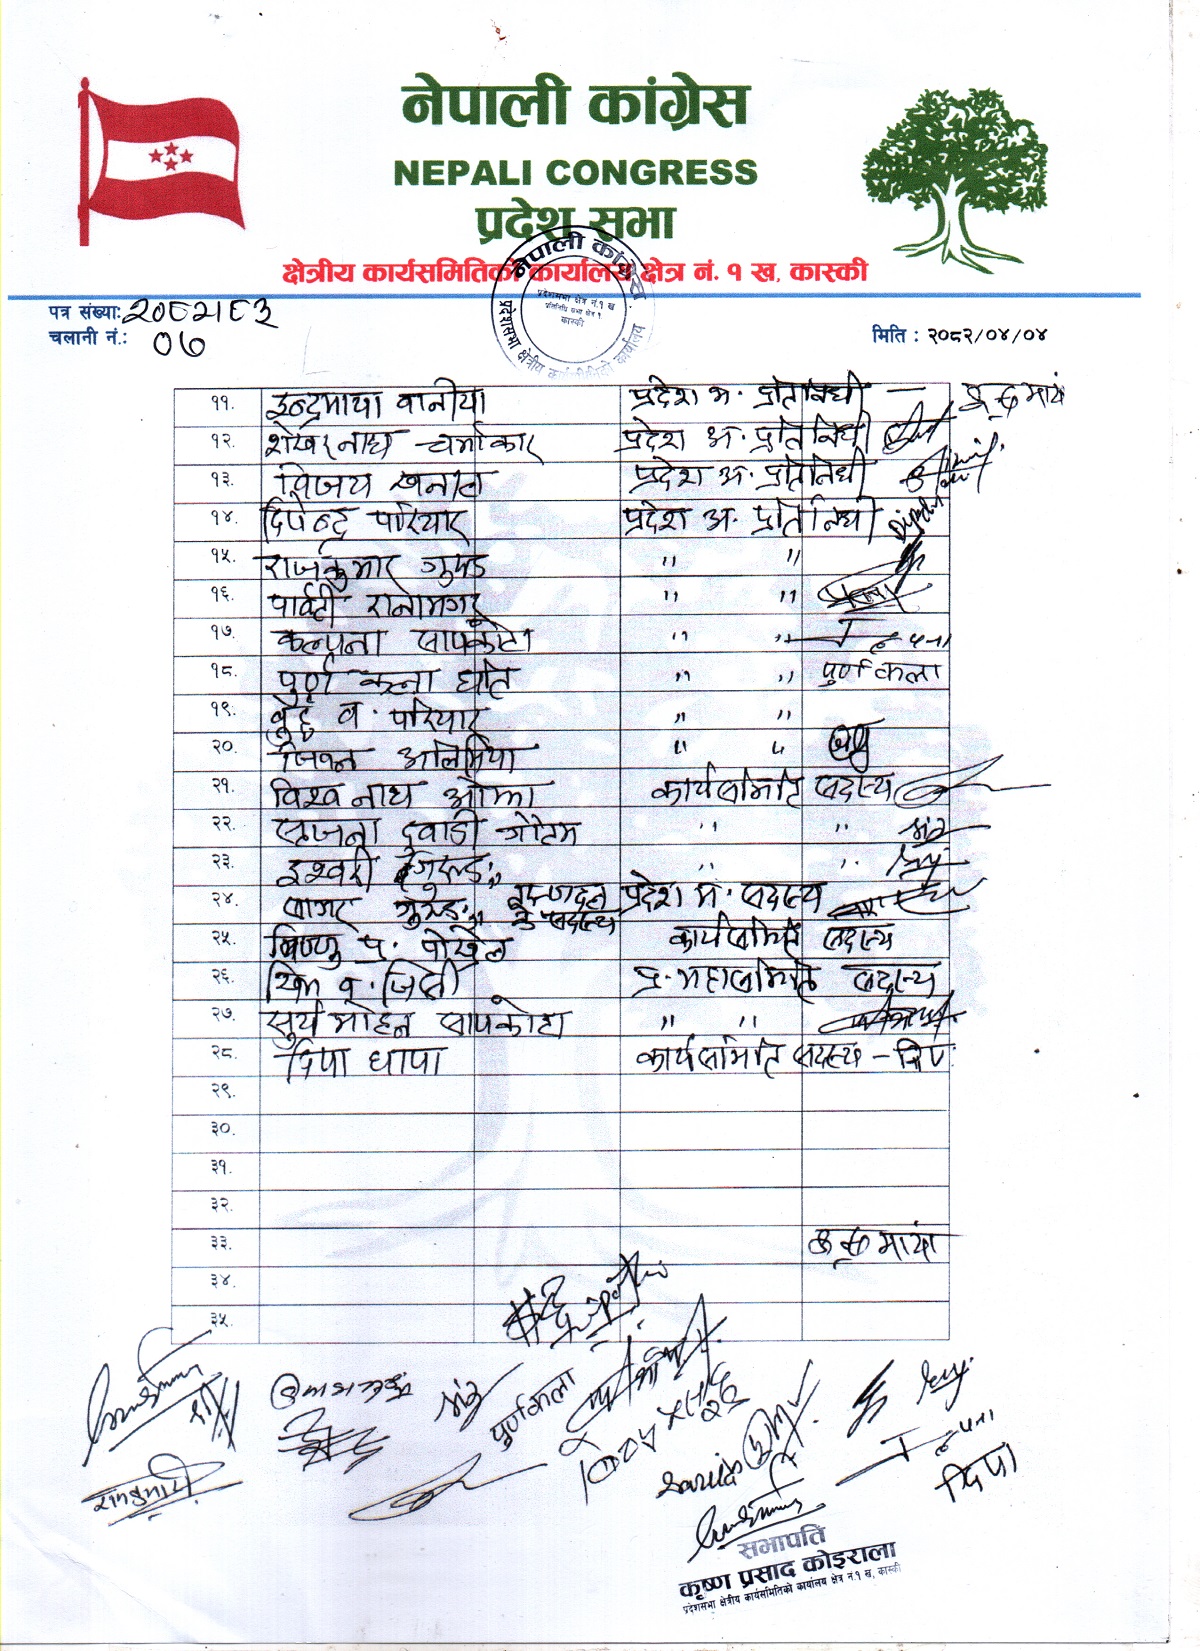 नेपाली कांग्रेस
NEPALI CONGRESS
प्रदेश सभा
क्षेत्रीय कार्यसमितिको कार्यालय क्षेत्र नं. १ ख, कास्की
नेपाली कांग्रेस
प्रदेशसभा क्षेत्र नं.१ ख
प्रतिनिधि सभा क्षेत्र १
कास्की
प्रदेशसभा क्षेत्रीय कार्यसमितिको कार्यालय
पत्र संख्या: २०८२।८३
चलानी नं.: ०७
मिति : २०८२/०४/०४
११. इन्द्रमाया वानीया प्रदेश अ. प्रतिनिधी —
१२. शेखरनाथ चर्माकार प्रदेश अ. प्रतिनिधी
१३. विजय खनाल प्रदेश अ. प्रतिनिधी
१४. दिपेन्द्र परियार प्रदेश अ. प्रतिनिधी
१५. राजकुमार गुरुङ " "
१६. पार्वती रानामगर " "
१७. कल्पना सापकोटा " "
१८. पूर्ण कला घर्ति " " पुर्णकला
१९. बुद्ध ब. परियार " "
२०. जिवन अलिमिया " "
२१. विश्व नाथ ओझा कार्यसमिति सदस्य
२२. सृजना दुवाडी गौतम " "
२३. इश्वरी गुरुङ " "
२४. सागर गुरुङ प्रदेश म. सदस्य
२५. विष्णु प्र. पोख्रेल कार्यसमिति सदस्य
२६. खिम ब. जिसी प्र. महासमिति सदस्य
२७. सुर्य मोहन सापकोटा " "
२८. दिपा थापा कार्यसमिति सदस्य –
२९.
३०.
३१.
३२.
३३.
३४.
३५.
पुर्णकला
दिपा
सभापति
कृष्ण प्रसाद कोइराला
प्रदेशसभा क्षेत्रीय कार्यसमितिको कार्यालय क्षेत्र नं.१ ख, कास्की